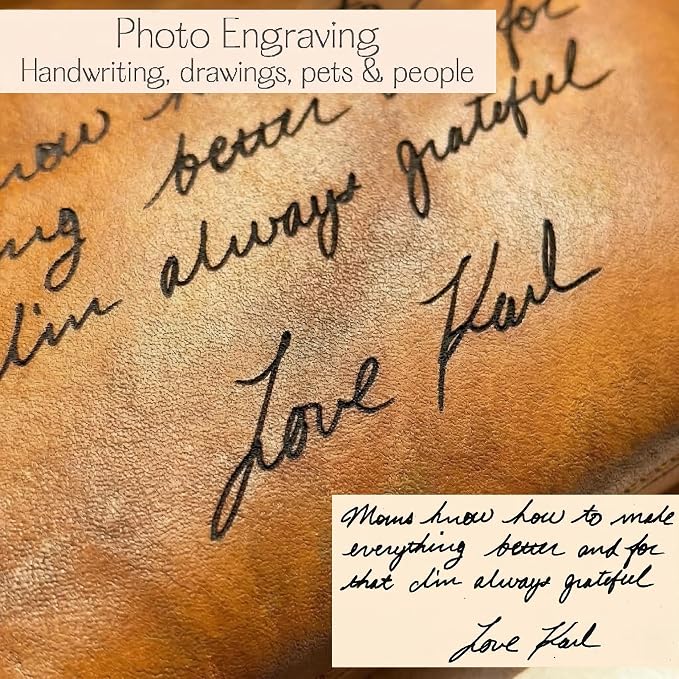 Photo Engraving
Handwriting, drawings, pets & people
know h to for
ng better
I'm always grateful
Love Karl
Moms know how to make
everything better and for
that I'm always grateful
Love Karl